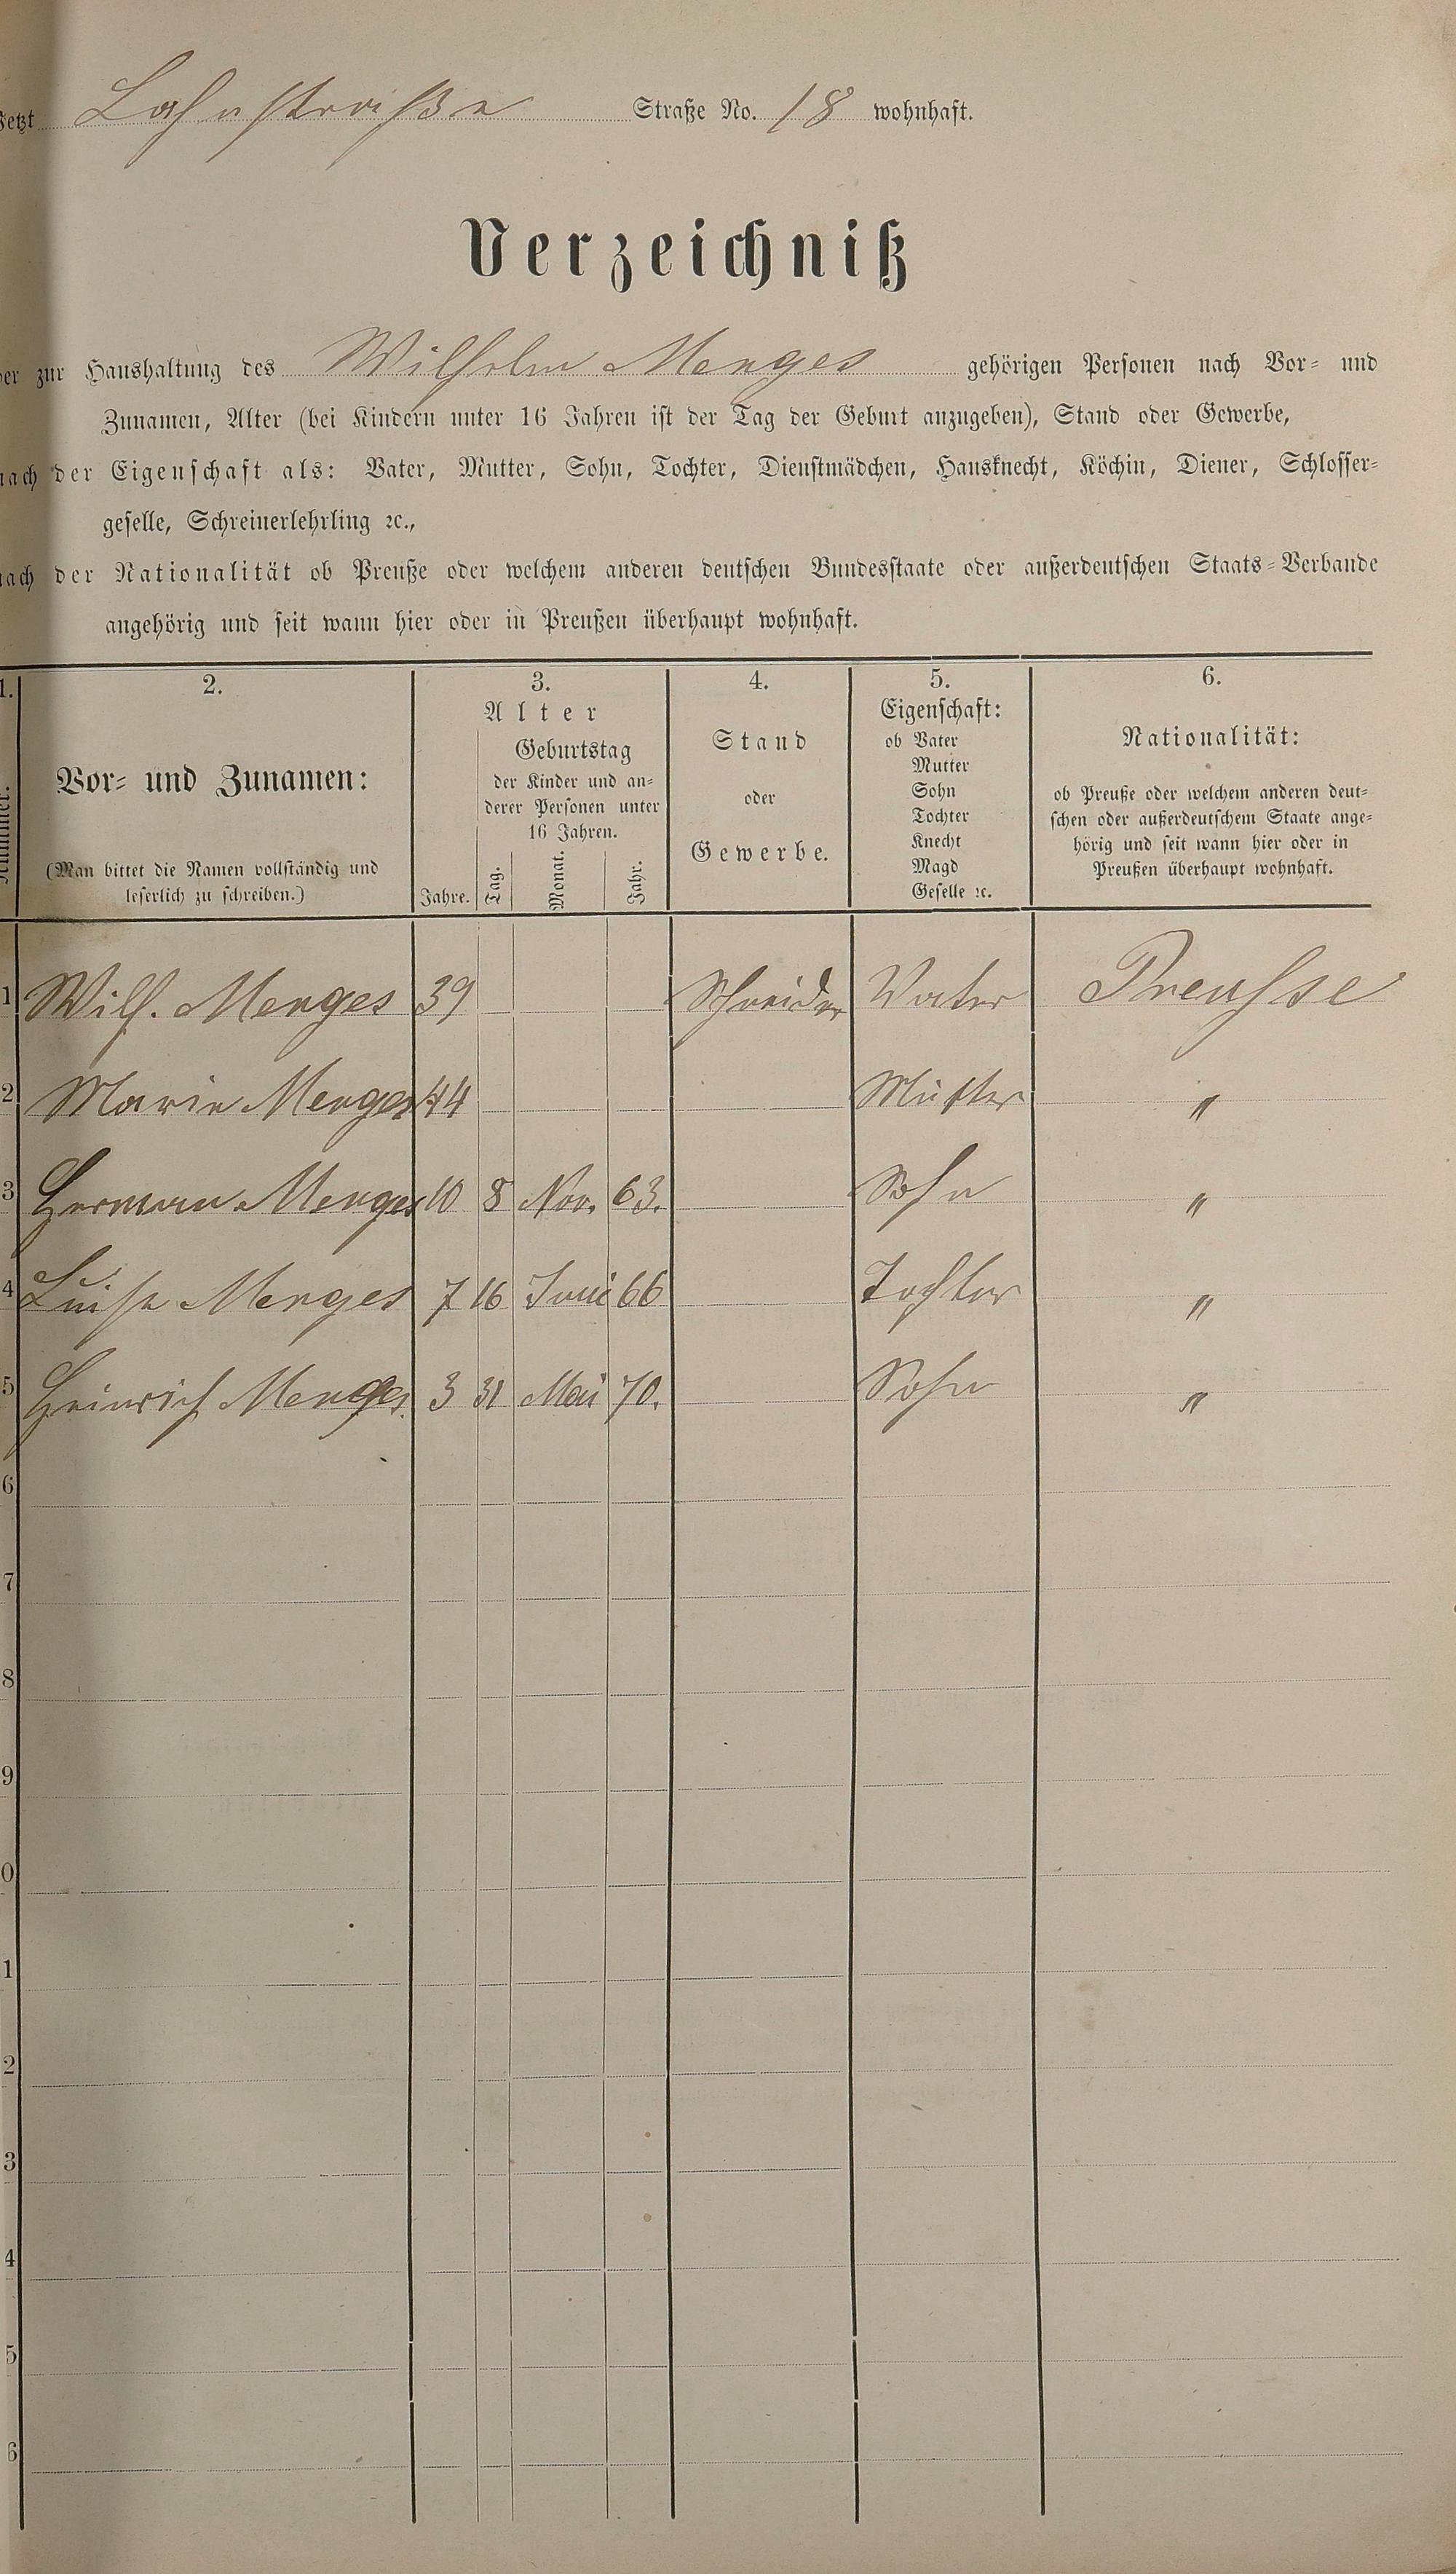 Jetzt Lahnstraiße Straße No. 18 wohnhaft.
Verzeichniß
der zur Haushaltung des Wilhelm Menges gehörigen Personen nach Vor- und
Zunamen, Alter (bei Kindern unter 16 Jahren ist der Tag der Geburt anzugeben), Stand oder Gewerbe,
nach der Eigenschaft als: Vater, Mutter, Sohn, Tochter, Dienstmädchen, Hausknecht, Köchin, Diener, Schlosser-
geselle, Schreinerlehrling ꝛc.,
nach der Nationalität ob Preuße oder welchem anderen deutschen Bundesstaate oder außerdeutschen Staats-Verbande
angehörig und seit wann hier oder in Preußen überhaupt wohnhaft.
1. 2. 3. 4. 5. 6.
Nummer.
Vor- und Zunamen:
(Man bittet die Namen vollständig und
leserlich zu schreiben.)
Alter
Geburtstag
der Kinder und an-
derer Personen unter
16 Jahren.
Jahre. Tag. Monat. Jahr.
Stand
oder
Gewerbe.
Eigenschaft:
ob Vater
Mutter
Sohn
Tochter
Knecht
Magd
Geselle ꝛc.
Nationalität:
ob Preuße oder welchem anderen deut-
schen oder außerdeutschem Staate ange-
hörig und seit wann hier oder in
Preußen überhaupt wohnhaft.
1 Wilh. Menges 39 Schneider Vater Preußse
2 Marie Menges 44 Mutter "
3 Herman Menges 10 8 Nov. 63. Sohn "
4 Luise Menges 7 16 Juni 66 Tochter "
5 Heinrich Menges. 3 31 Mai 70. Sohn "
6
7
8
9
0
1
2
3
4
5
6